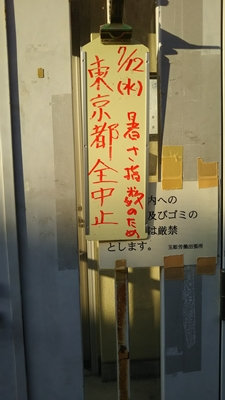 7/12(水)
暑さ指数のため
東京都全中止
内への
及びゴミの
は厳禁
とします。
玉姫労働出張所